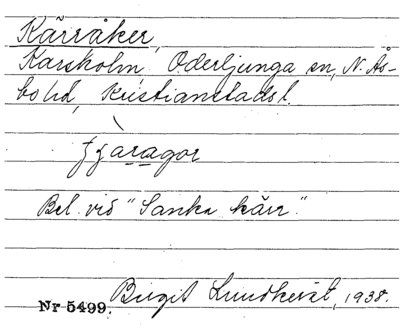 Kärråker,
Karsholm Oderljunga sn, N. Ås-
bo hd, Kristianstads l.
fjaragor
Bel. vid "Sanka kärr".
Birgit Lundkvist, 1938.
Nr 5499.